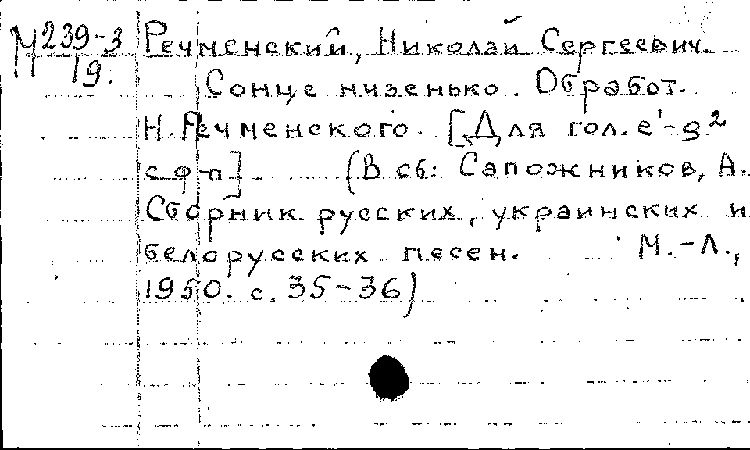 М 239-3 Речменский, Николай Сергеевич.
19.
Сонце низенько. Обработ.
Н. Речменского. [Для гол. e¹-g²
с ф-п] (В сб: Сапожников, А.
Сборник русских, украинских и
белорусских песен. М.-Л.,
1950. с. 35-36)